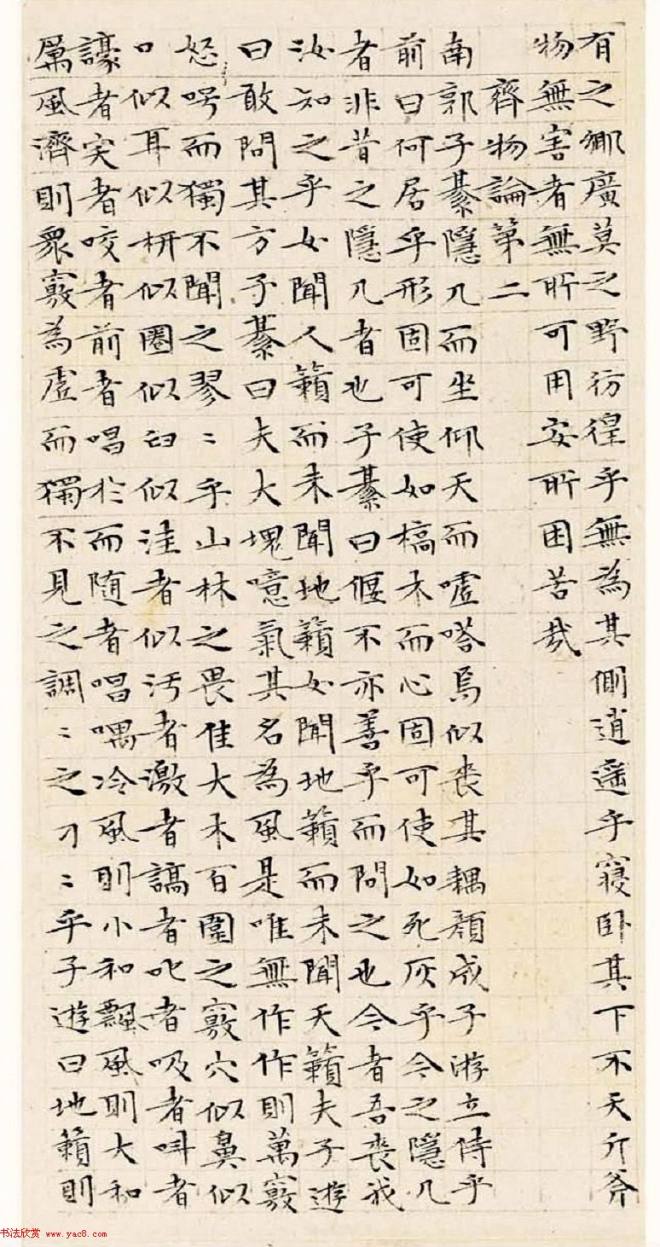 有之鄉廣莫之野彷徨乎無為其側逍遙乎寢卧其下不夭斤斧
物無害者無所可用安所困苦哉
齊物論第二
南郭子綦隱几而坐仰天而噓嗒焉似喪其耦顏成子游立侍乎
前曰何居乎形固可使如槁木而心固可使如死灰乎今之隱几
者非昔之隱几者也子綦曰偃不亦善乎而問之也今者吾喪我
汝知之乎女聞人籟而未聞地籟女聞地籟而未聞天籟夫子遊
曰敢問其方子綦曰夫大塊噫氣其名為風是唯無作作則萬竅
怒呺而獨不聞之翏〻乎山林之畏佳大木百圍之竅穴似鼻似
口似耳似枅似圈似臼似洼者似汙者激者謞者叱者吸者叫者
譹者宎者咬者前者唱於而随者唱喁冷風則小和飄風則大和
厲風濟則眾竅為虛而獨不見之調〻之刁〻乎子遊曰地籟則
书法欣赏 www.yac8.com